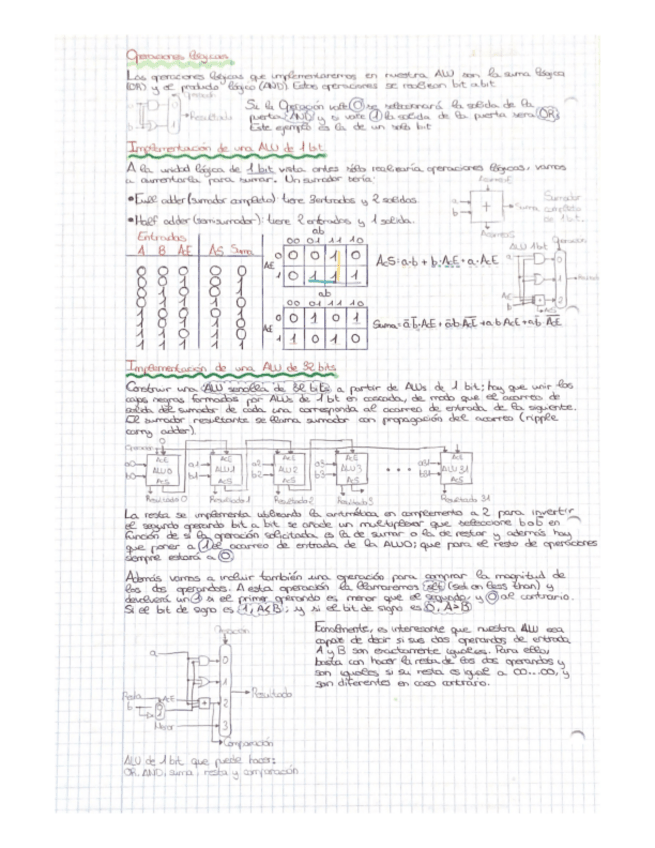 Operaciones lógicas
Las operaciones lógicas que implementaremos en nuestra ALU son la suma lógica
(OR) y el producto lógico (AND). Estas operaciones se realizan bit a bit.
Si la Operación vale 0 se seleccionará la salida de la
puerta AND y si vale 1 la salida de la puerta será OR.
Este ejemplo es la de un solo bit
a
b
0
1
Resultado
Implementación de una ALU de 1 bit
A la unidad lógica de 1 bit vista antes sólo realizaría operaciones lógicas, vamos
a aumentarla para sumar. Un sumador sería:
• Full adder (sumador completo): tiene 3 entradas y 2 salidas.
• Half adder (semisumador): tiene 2 entradas y 1 salida.
a
b
+
Suma
AcarreoS
Sumador
completo
de 1 bit.
Entradas
A B AE AS Suma
0 0 0 0 0
0 0 1 0 1
0 1 0 0 1
0 1 1 1 0
1 0 0 0 1
1 0 1 1 0
1 1 0 1 0
1 1 1 1 1
ab
00 01 11 10
AE
0 0 0 1 0
1 0 1 1 1
AcS: a·b + b·AcE + a·AcE
ab
00 01 11 10
AE
0 0 1 0 1
1 1 0 1 0
ALU 1 bit
Operación
a
b
0
1
2
Resultado
Implementación de una ALU de 32 bits
Construir una ALU sencilla de 32 bits a partir de ALUs de 1 bit; hay que unir las
cajas negras formadas por ALUs de 1 bit en cascada, de modo que el acarreo de
salida del sumador de cada una corresponda al acarreo de entrada de la siguiente.
El sumador resultante se llama sumador con propagación del acarreo (ripple
carry adder).
Operación
a0 b0 AcE ALU0 AcS Resultado 0
a1 b1 AcE ALU1 AcS Resultado 1
a2 b2 AcE ALU2 AcS Resultado 2
a3 b3 AcE ALU3 AcS Resultado 3
a31 b31 AcE ALU31 AcS Resultado 31
La resta se implementa utilizando la aritmética en complemento a 2 para invertir
el segundo operando bit a bit se añade un multiplexor que seleccione b o b en
función de si la operación solicitada es la de sumar o la de restar y además hay
que poner a 1 el acarreo de entrada de la ALU0; que para el resto de operaciones
siempre estará a 0
Además vamos a incluir también una operación para comprar la magnitud de
los dos operandos. A esta operación la llamaremos slt (set on less than) y
devolverá un 1 si el primer operando es menor que el segundo, y 0 al contrario.
Si el bit de signo es 1, A<B; y si el bit de signo es 0, A>B
Operación
a
Resta
b
AcE
Menor
0
1
2
3
Resultado
Comparación
Finalmente, es interesante que nuestra ALU sea
capaz de decir si sus dos operandos de entrada
A y B son exactamente iguales. Para ello,
basta con hacer la resta de los dos operandos y
son iguales si su resta es igual a 00...00, y
son diferentes en caso contrario.
ALU de 1 bit que puede hacer:
OR, AND, suma, resta y comparación